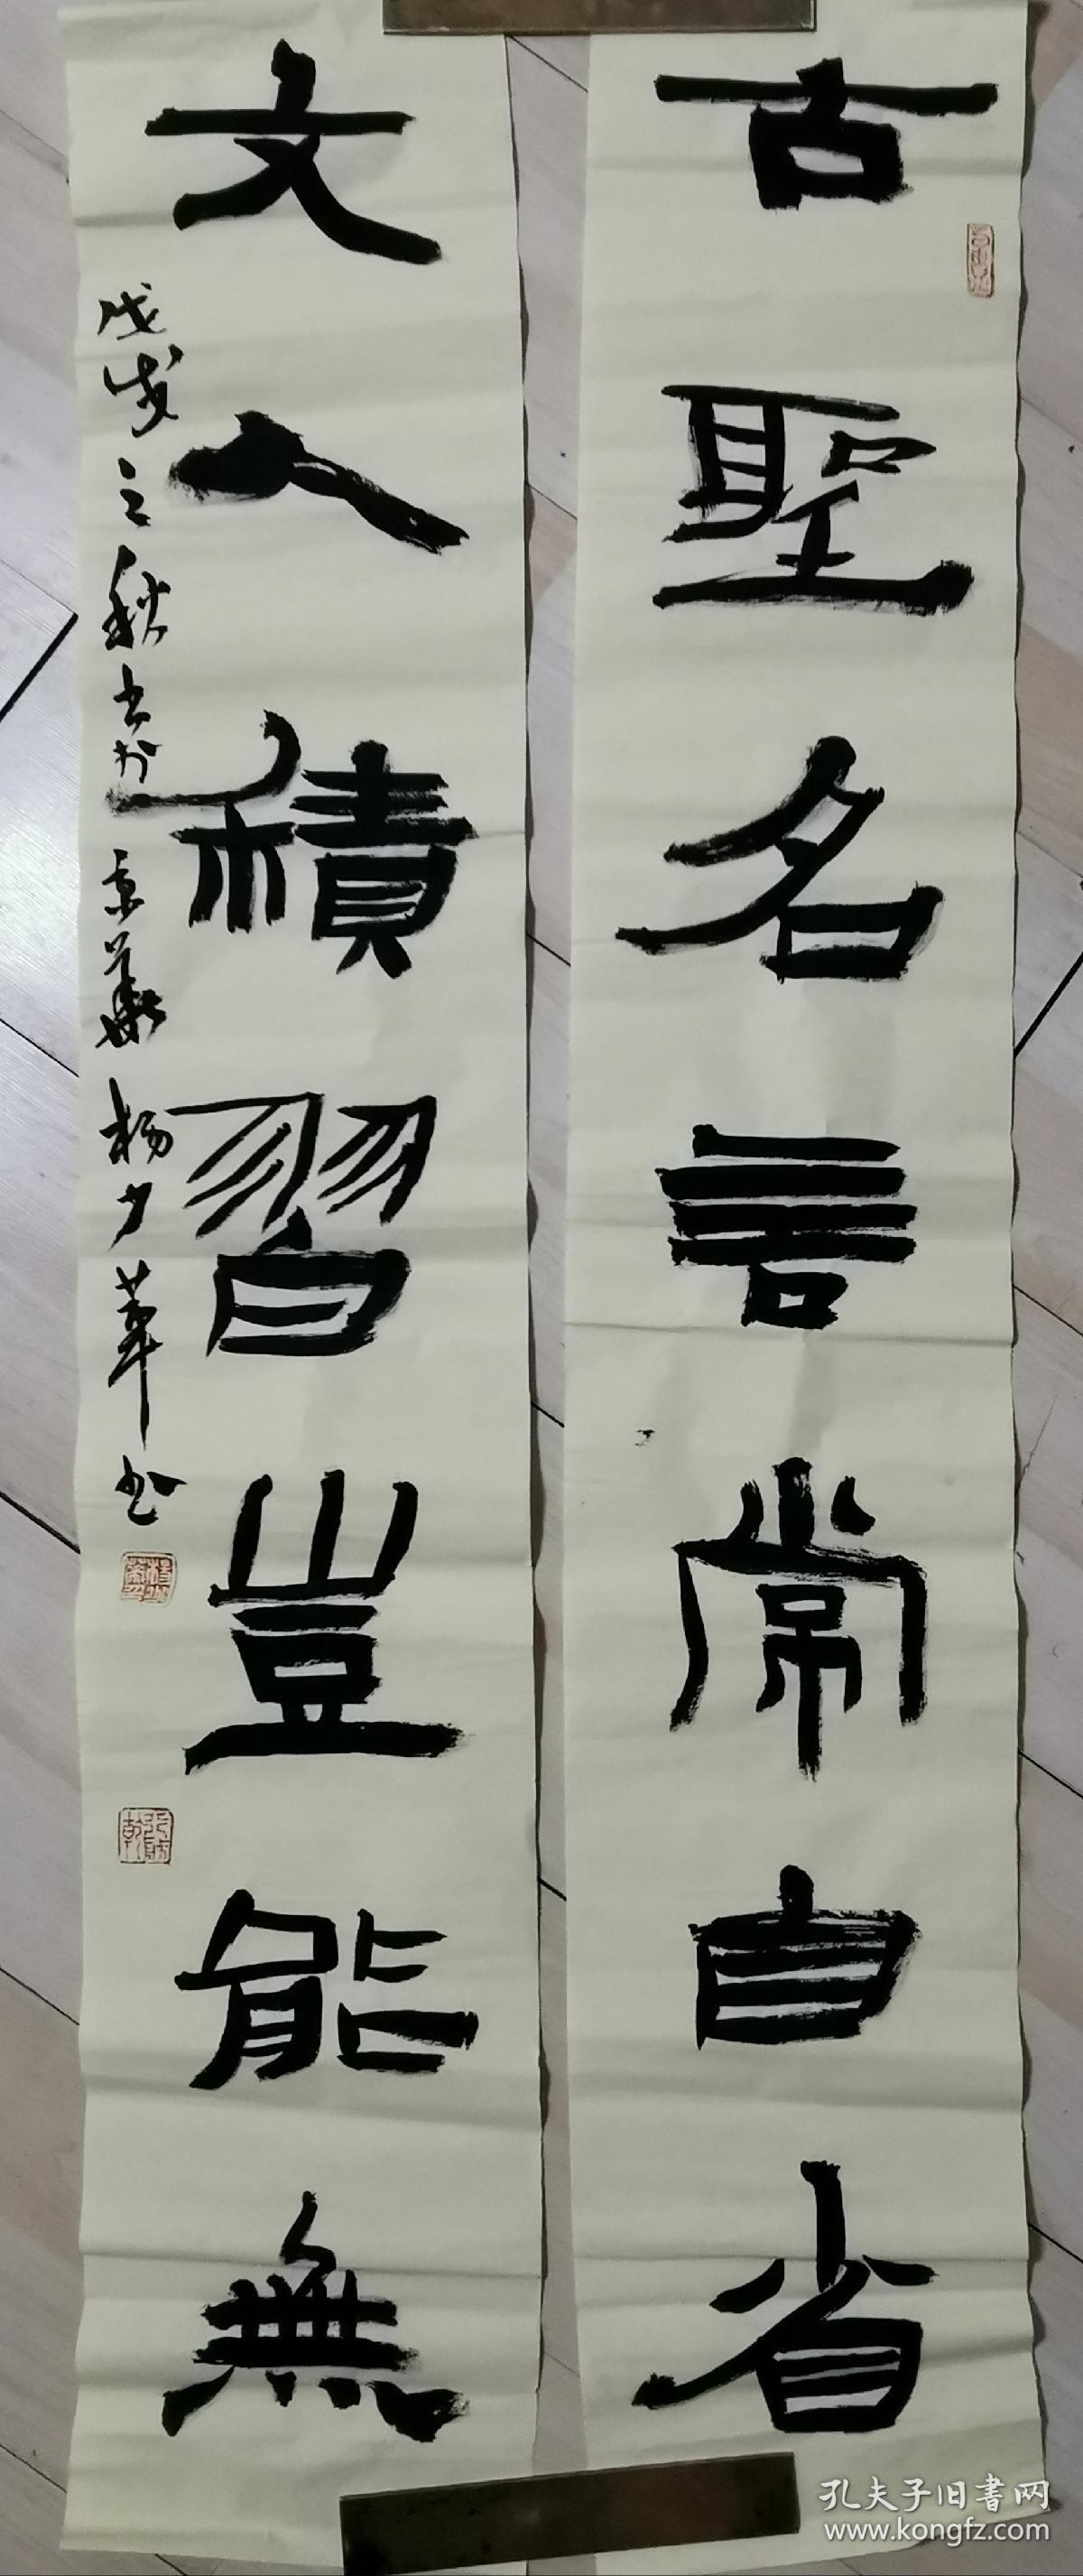 古聖名言常自省
文人積習豈能無
戊戌之秋書於京華楊少華書
孔夫子旧書网
www.kongfz.com